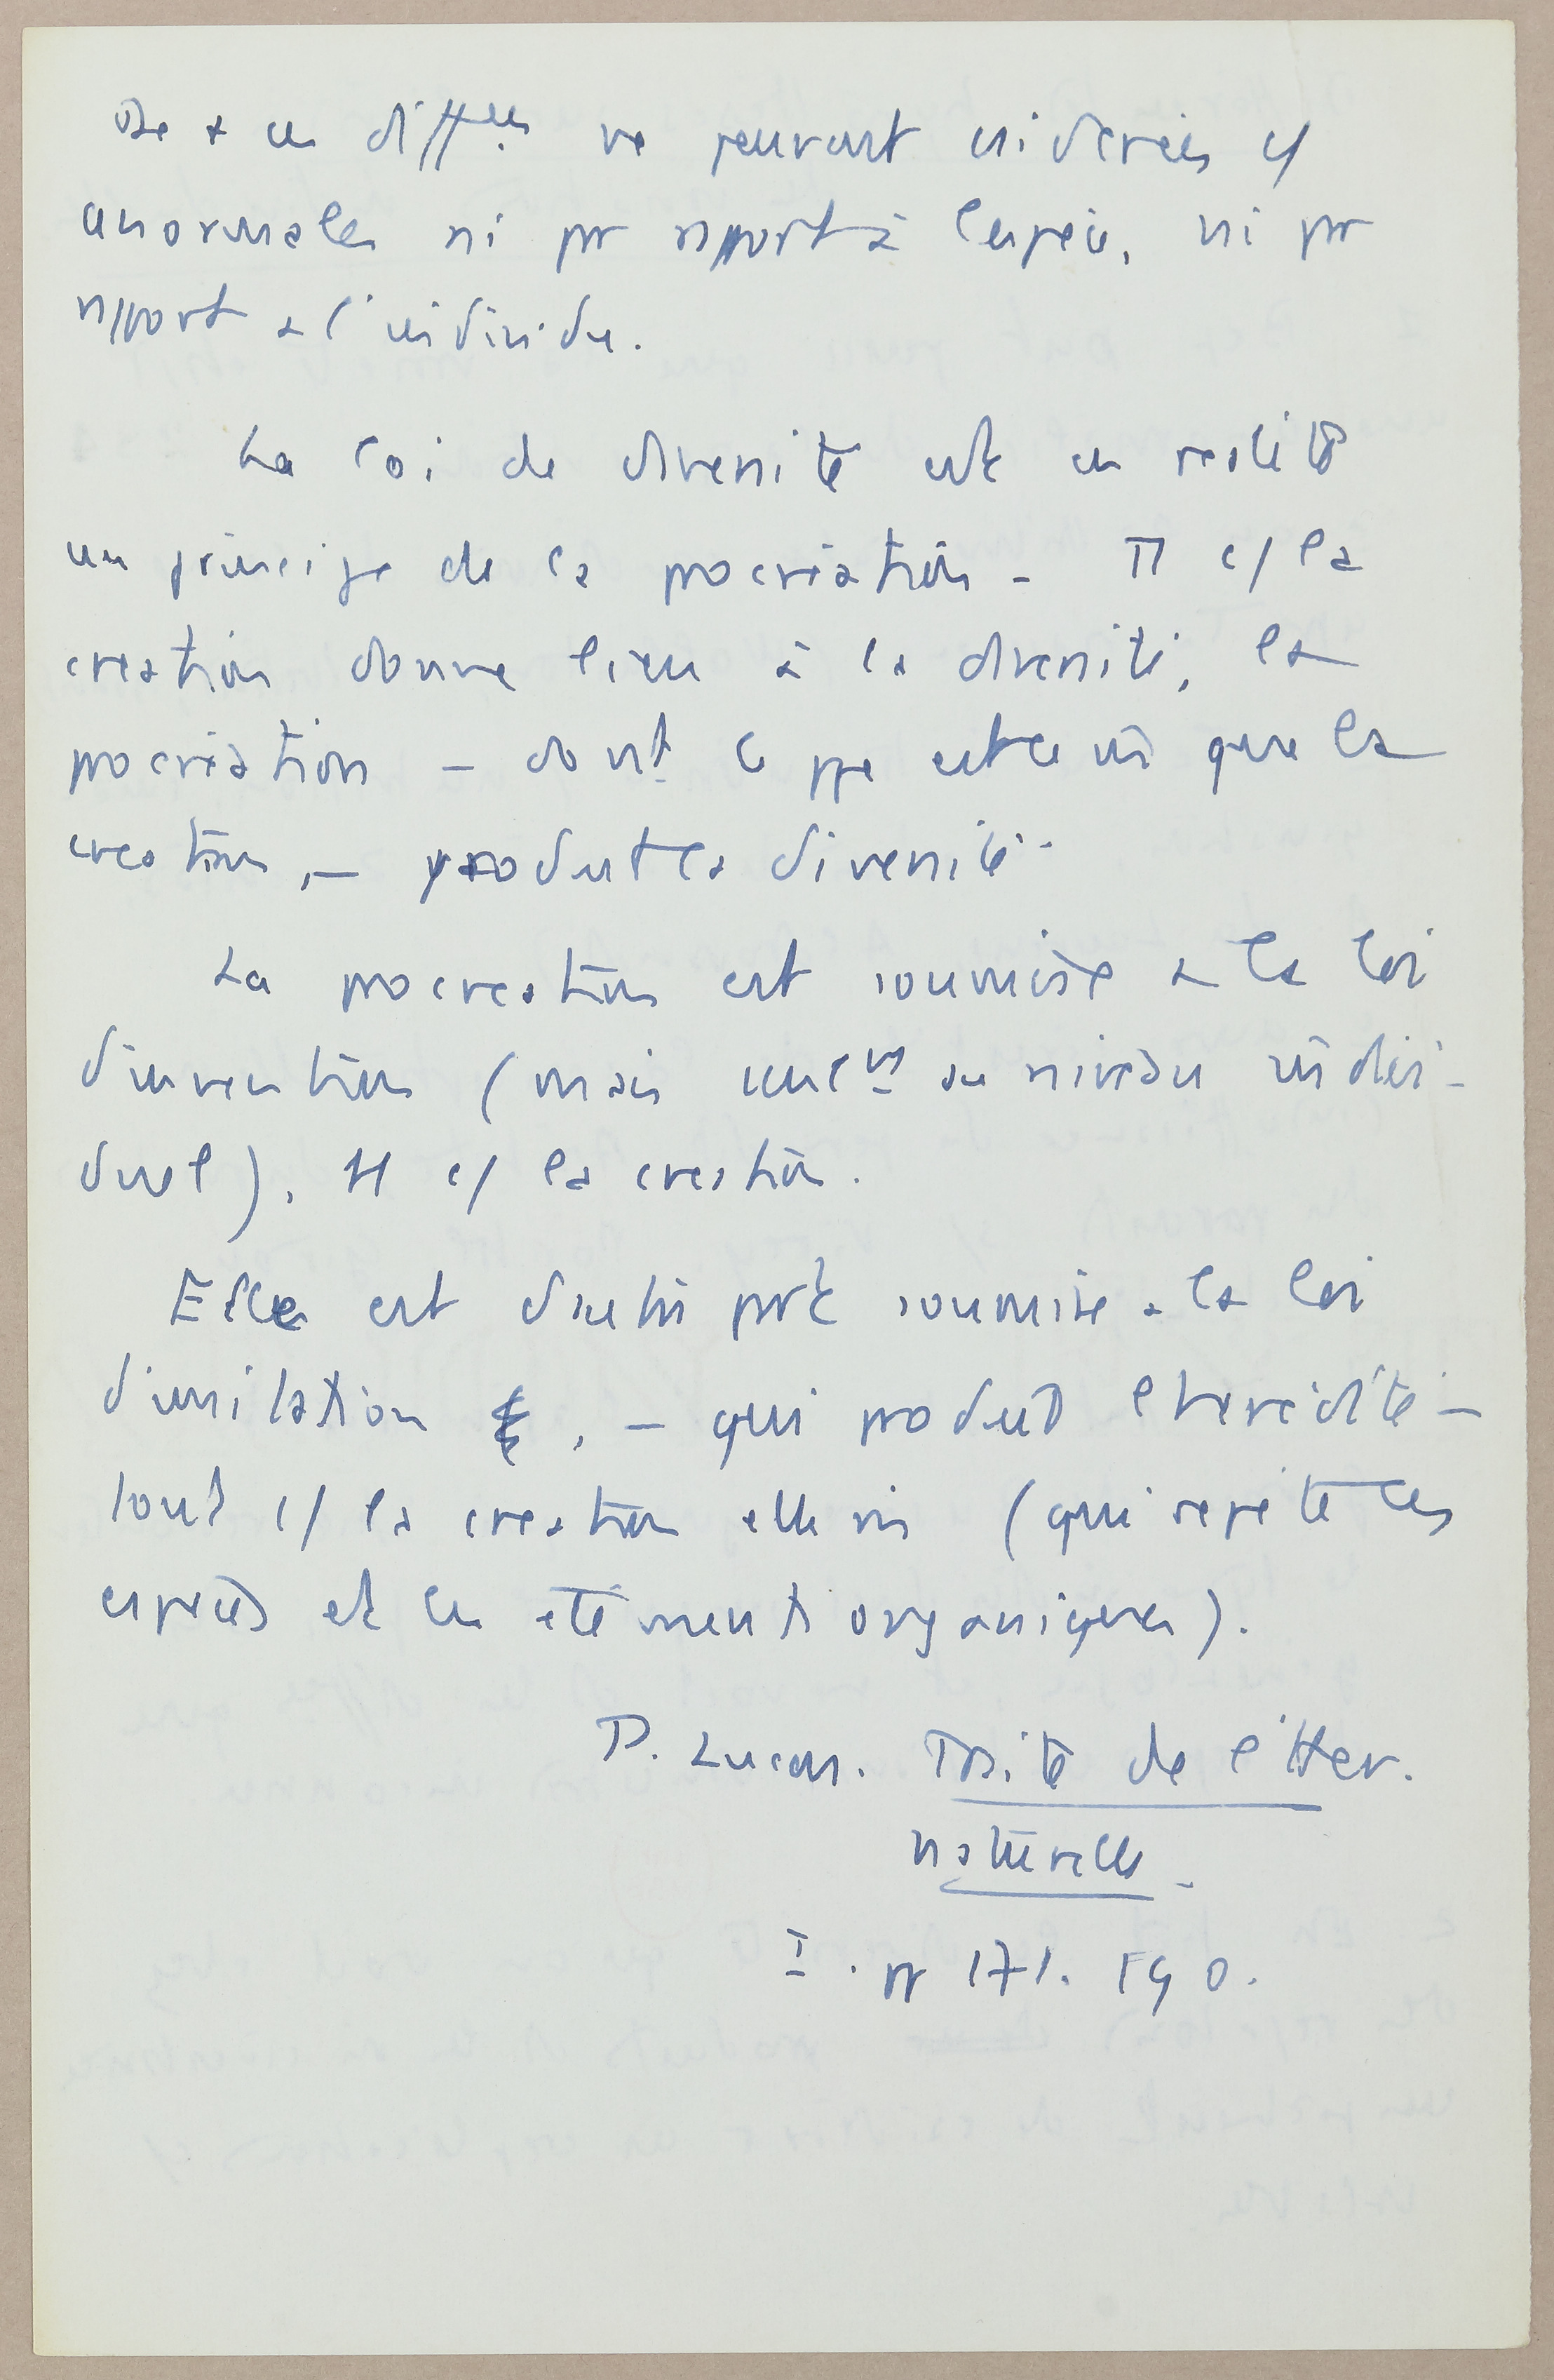 De + ces diff^ces ne peuvent considérées c/
anormales ni pr rapport à l'espèce, ni pr
rapport à l'individu.
La loi de diversité est en réalité
un principe de la procréation - De m c/ la
création donne lieu à la diversité, la
procréation - dont le ppe est le m que la
création, - produit la diversité.
La procréation est soumise à la loi
d'invention (mais seul^mt au niveau indivi-
duel), tt c/ la création.
Elle est d'autre part soumise à la loi
d'imitation, - qui produit l'hérédité -
tout c/ la création elle m (qui répète les
espèces et les éléments organiques).
P. Lucas. Traité de l'Hér.
naturelle.
I. pp 171. 190.